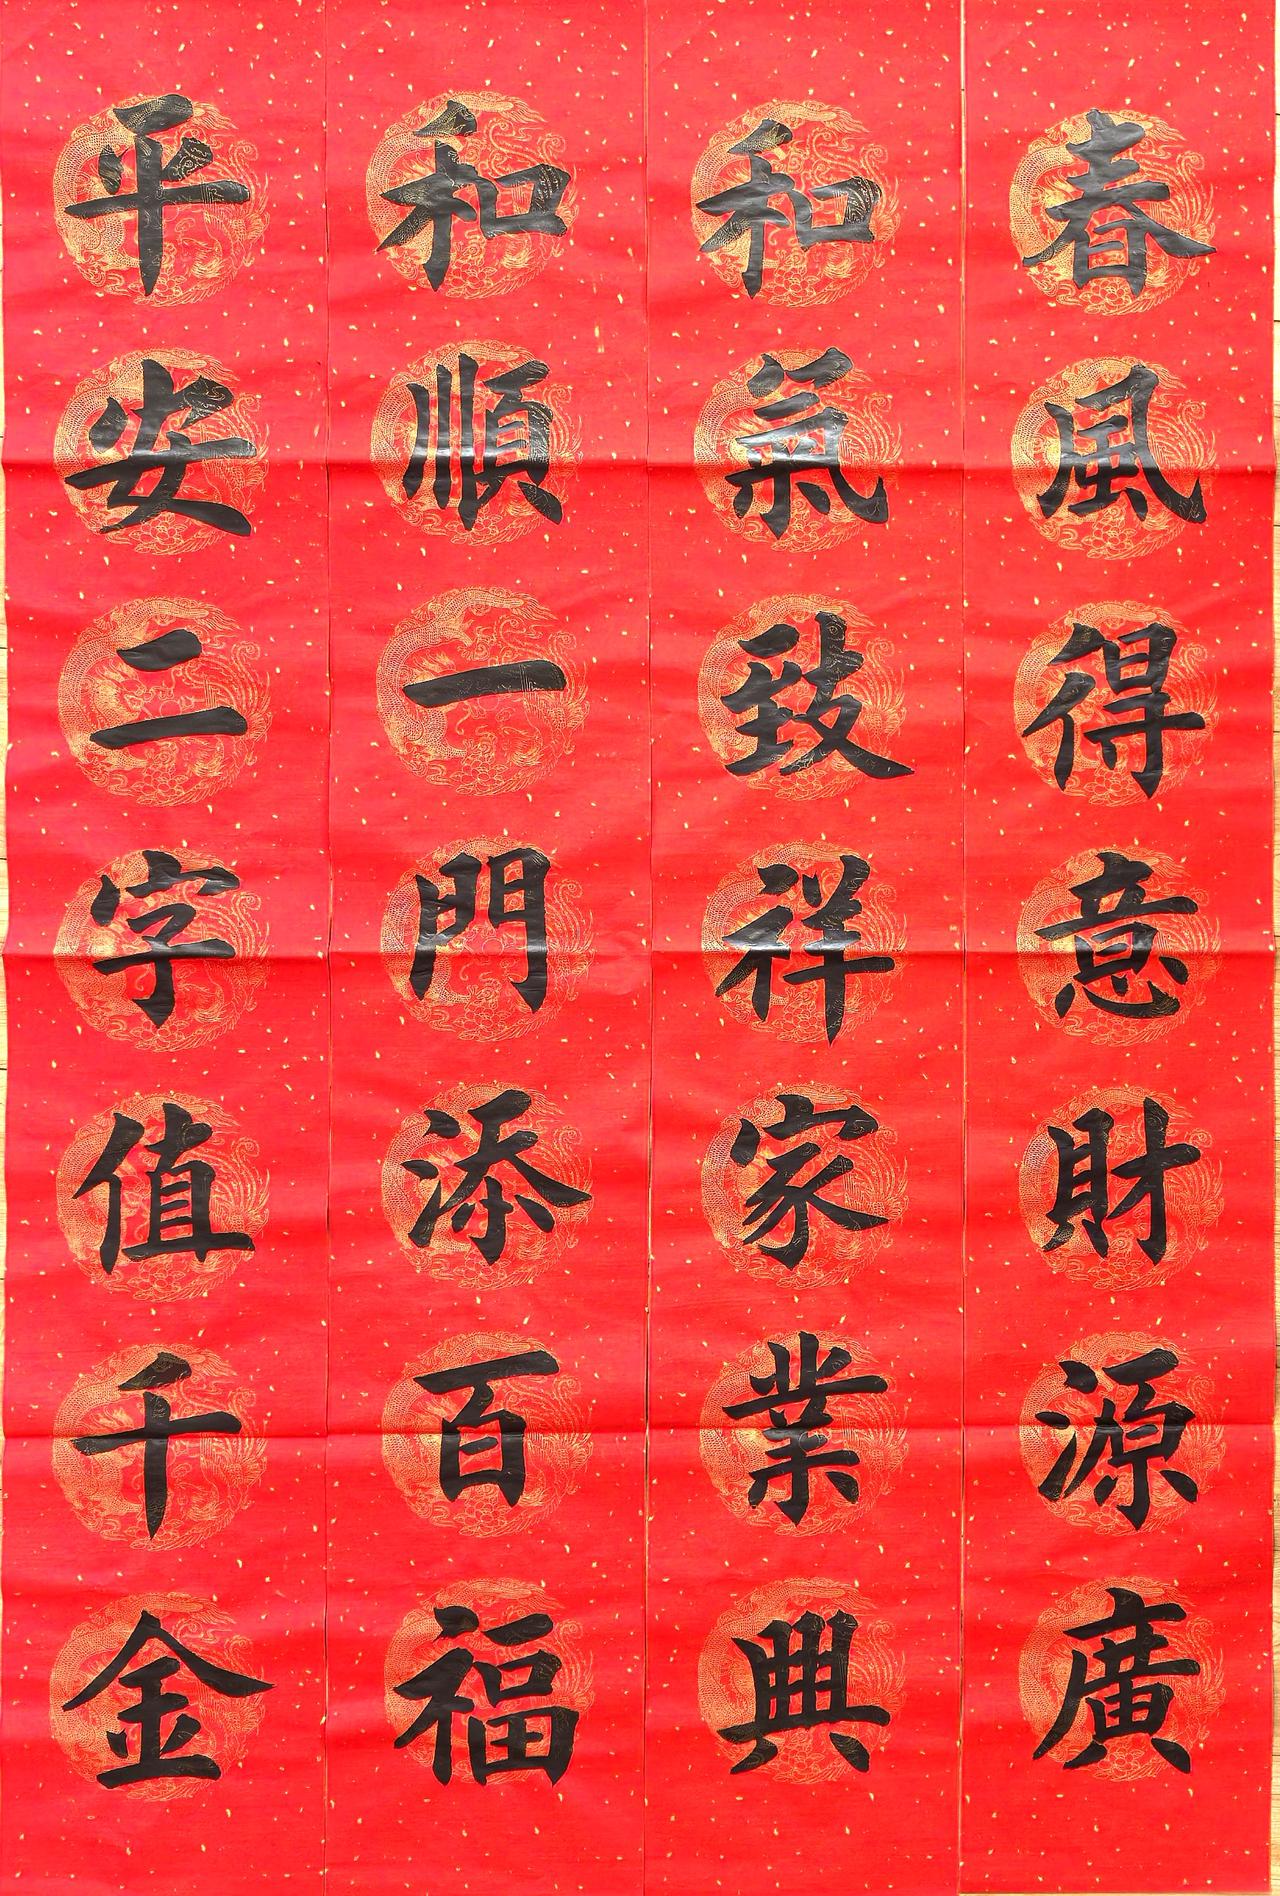 春風得意財源廣
和氣致祥家業興
和順一門添百福
平安二字值千金